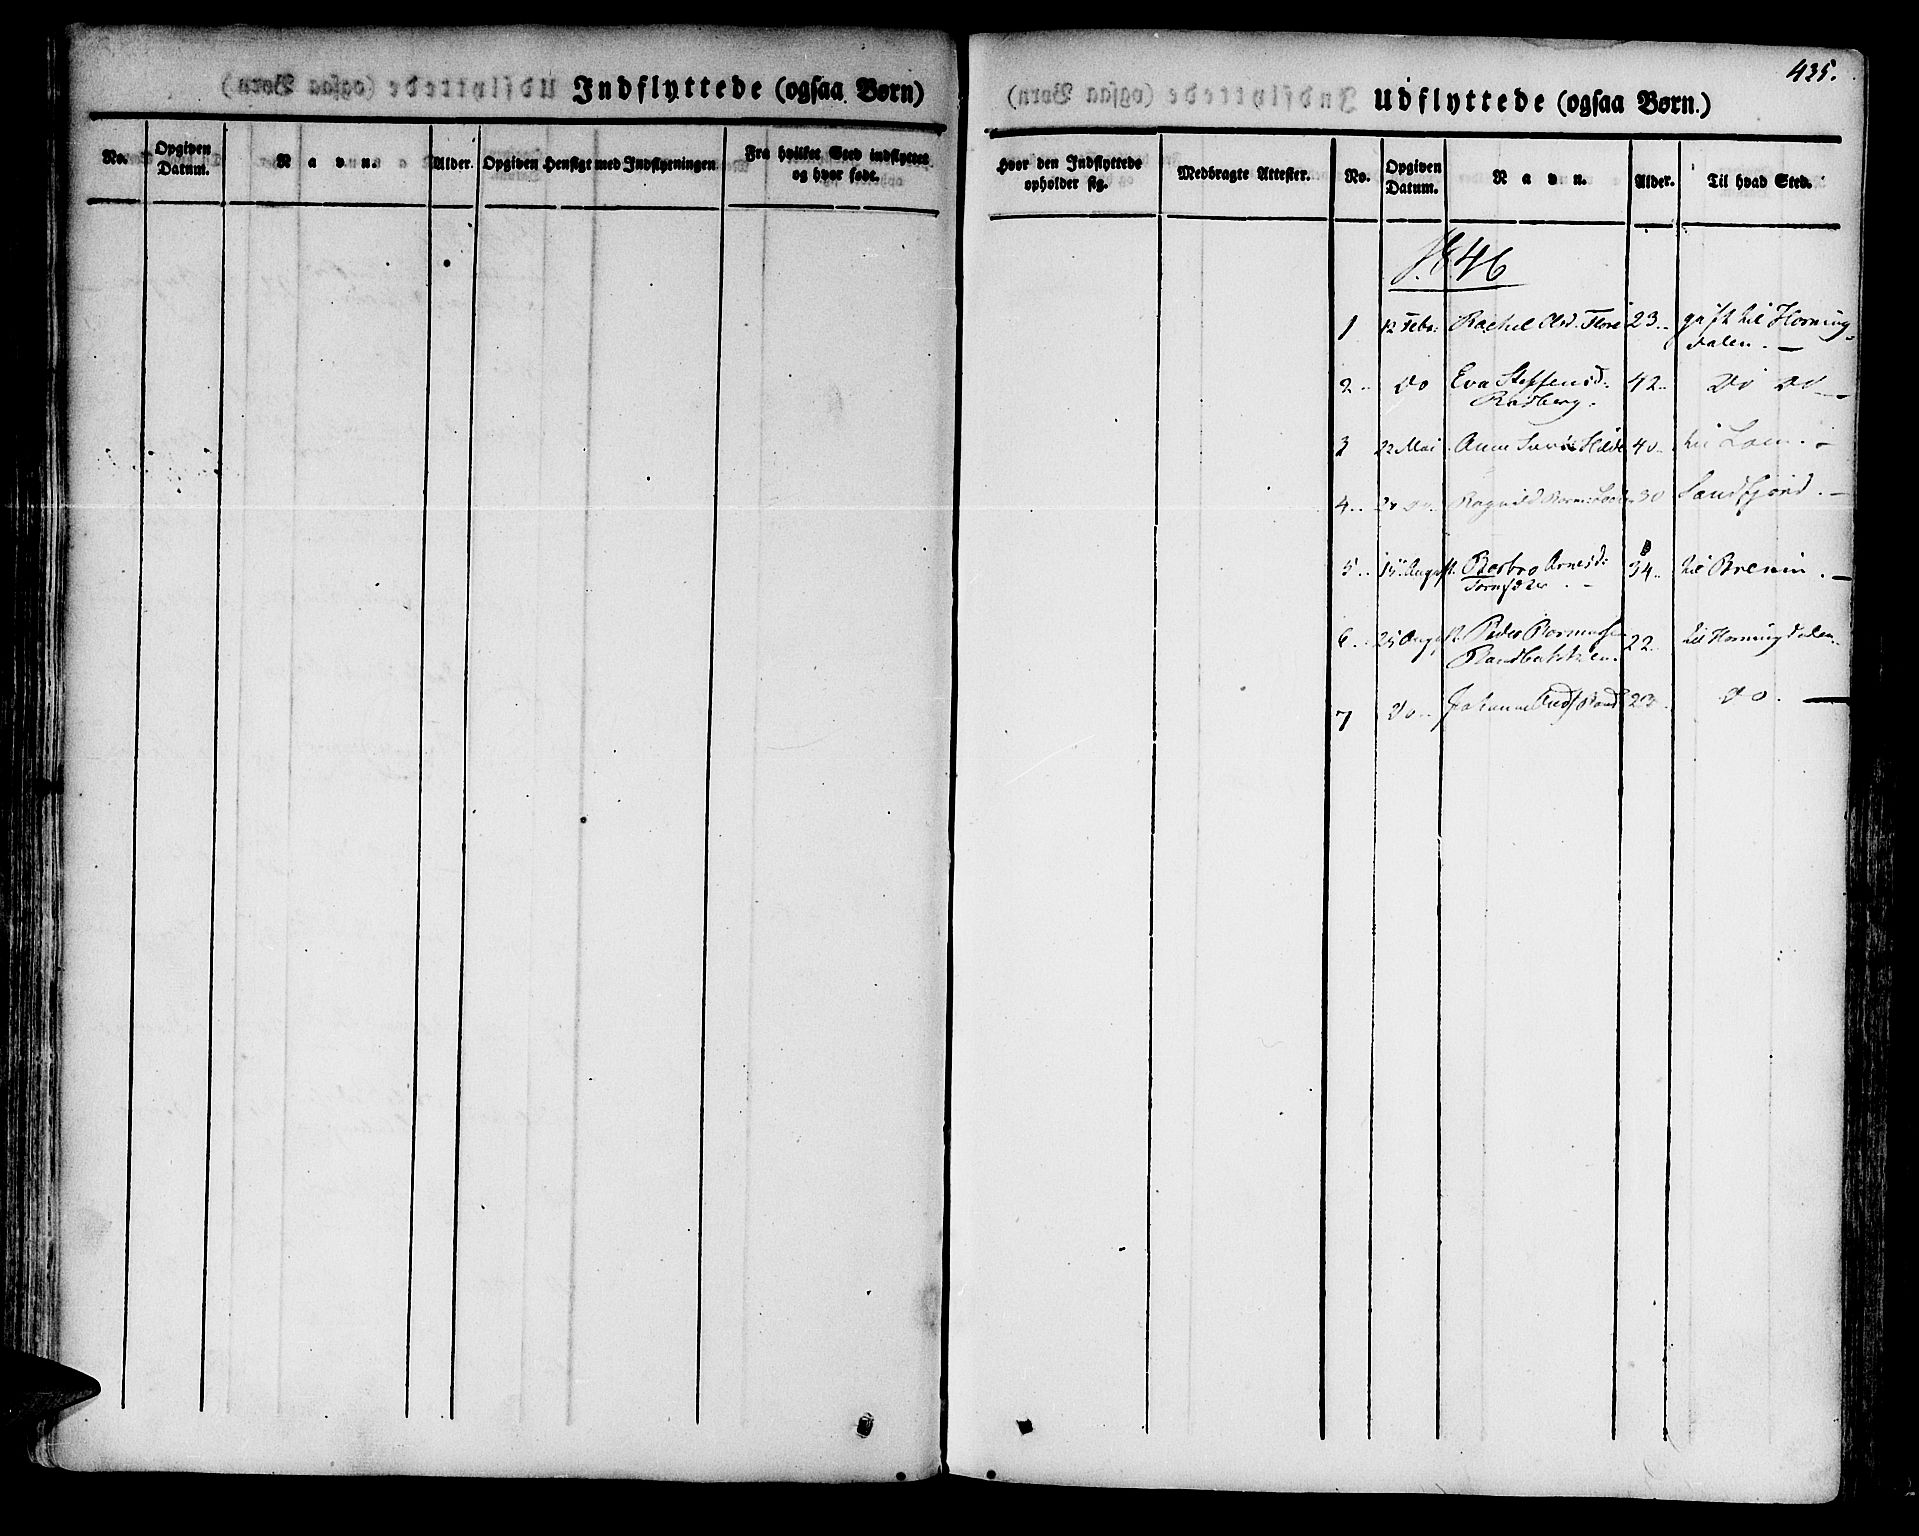 Indflyttede (ogsaa Børn)
No.
Opgiven Datum.
Navn.
Alder.
Opgiven Hensigt med Indflytningen
Fra hvilket Sted indflyttet og hvor føde.
435.
Udflyttede (ogsaa Børn.)
Hvor den Indflyttede opholder sig.
Medbragte Attester.
No.
Opgiven Datum.
Navn.
Alder.
Til hvad Sted.
1846
1 12 Febr: Rachel Olsd. Flore 23.. gift til Horning
dalen. —
2.. Do Eva Steffensd: 42.. Do Do —
Rødberg.
3 22 Mai Anne Hilde 40.. til Lom. —
4.. Do. Ragnild 30 Sandfjord. —
5.. 15 August. Barbro Arnesd: 34.. til Bremin. —
6.. 25 August. Peder Rasmussen 22.. til Horningdalen.
7 Do.. Johanne Rand 23. Do. —